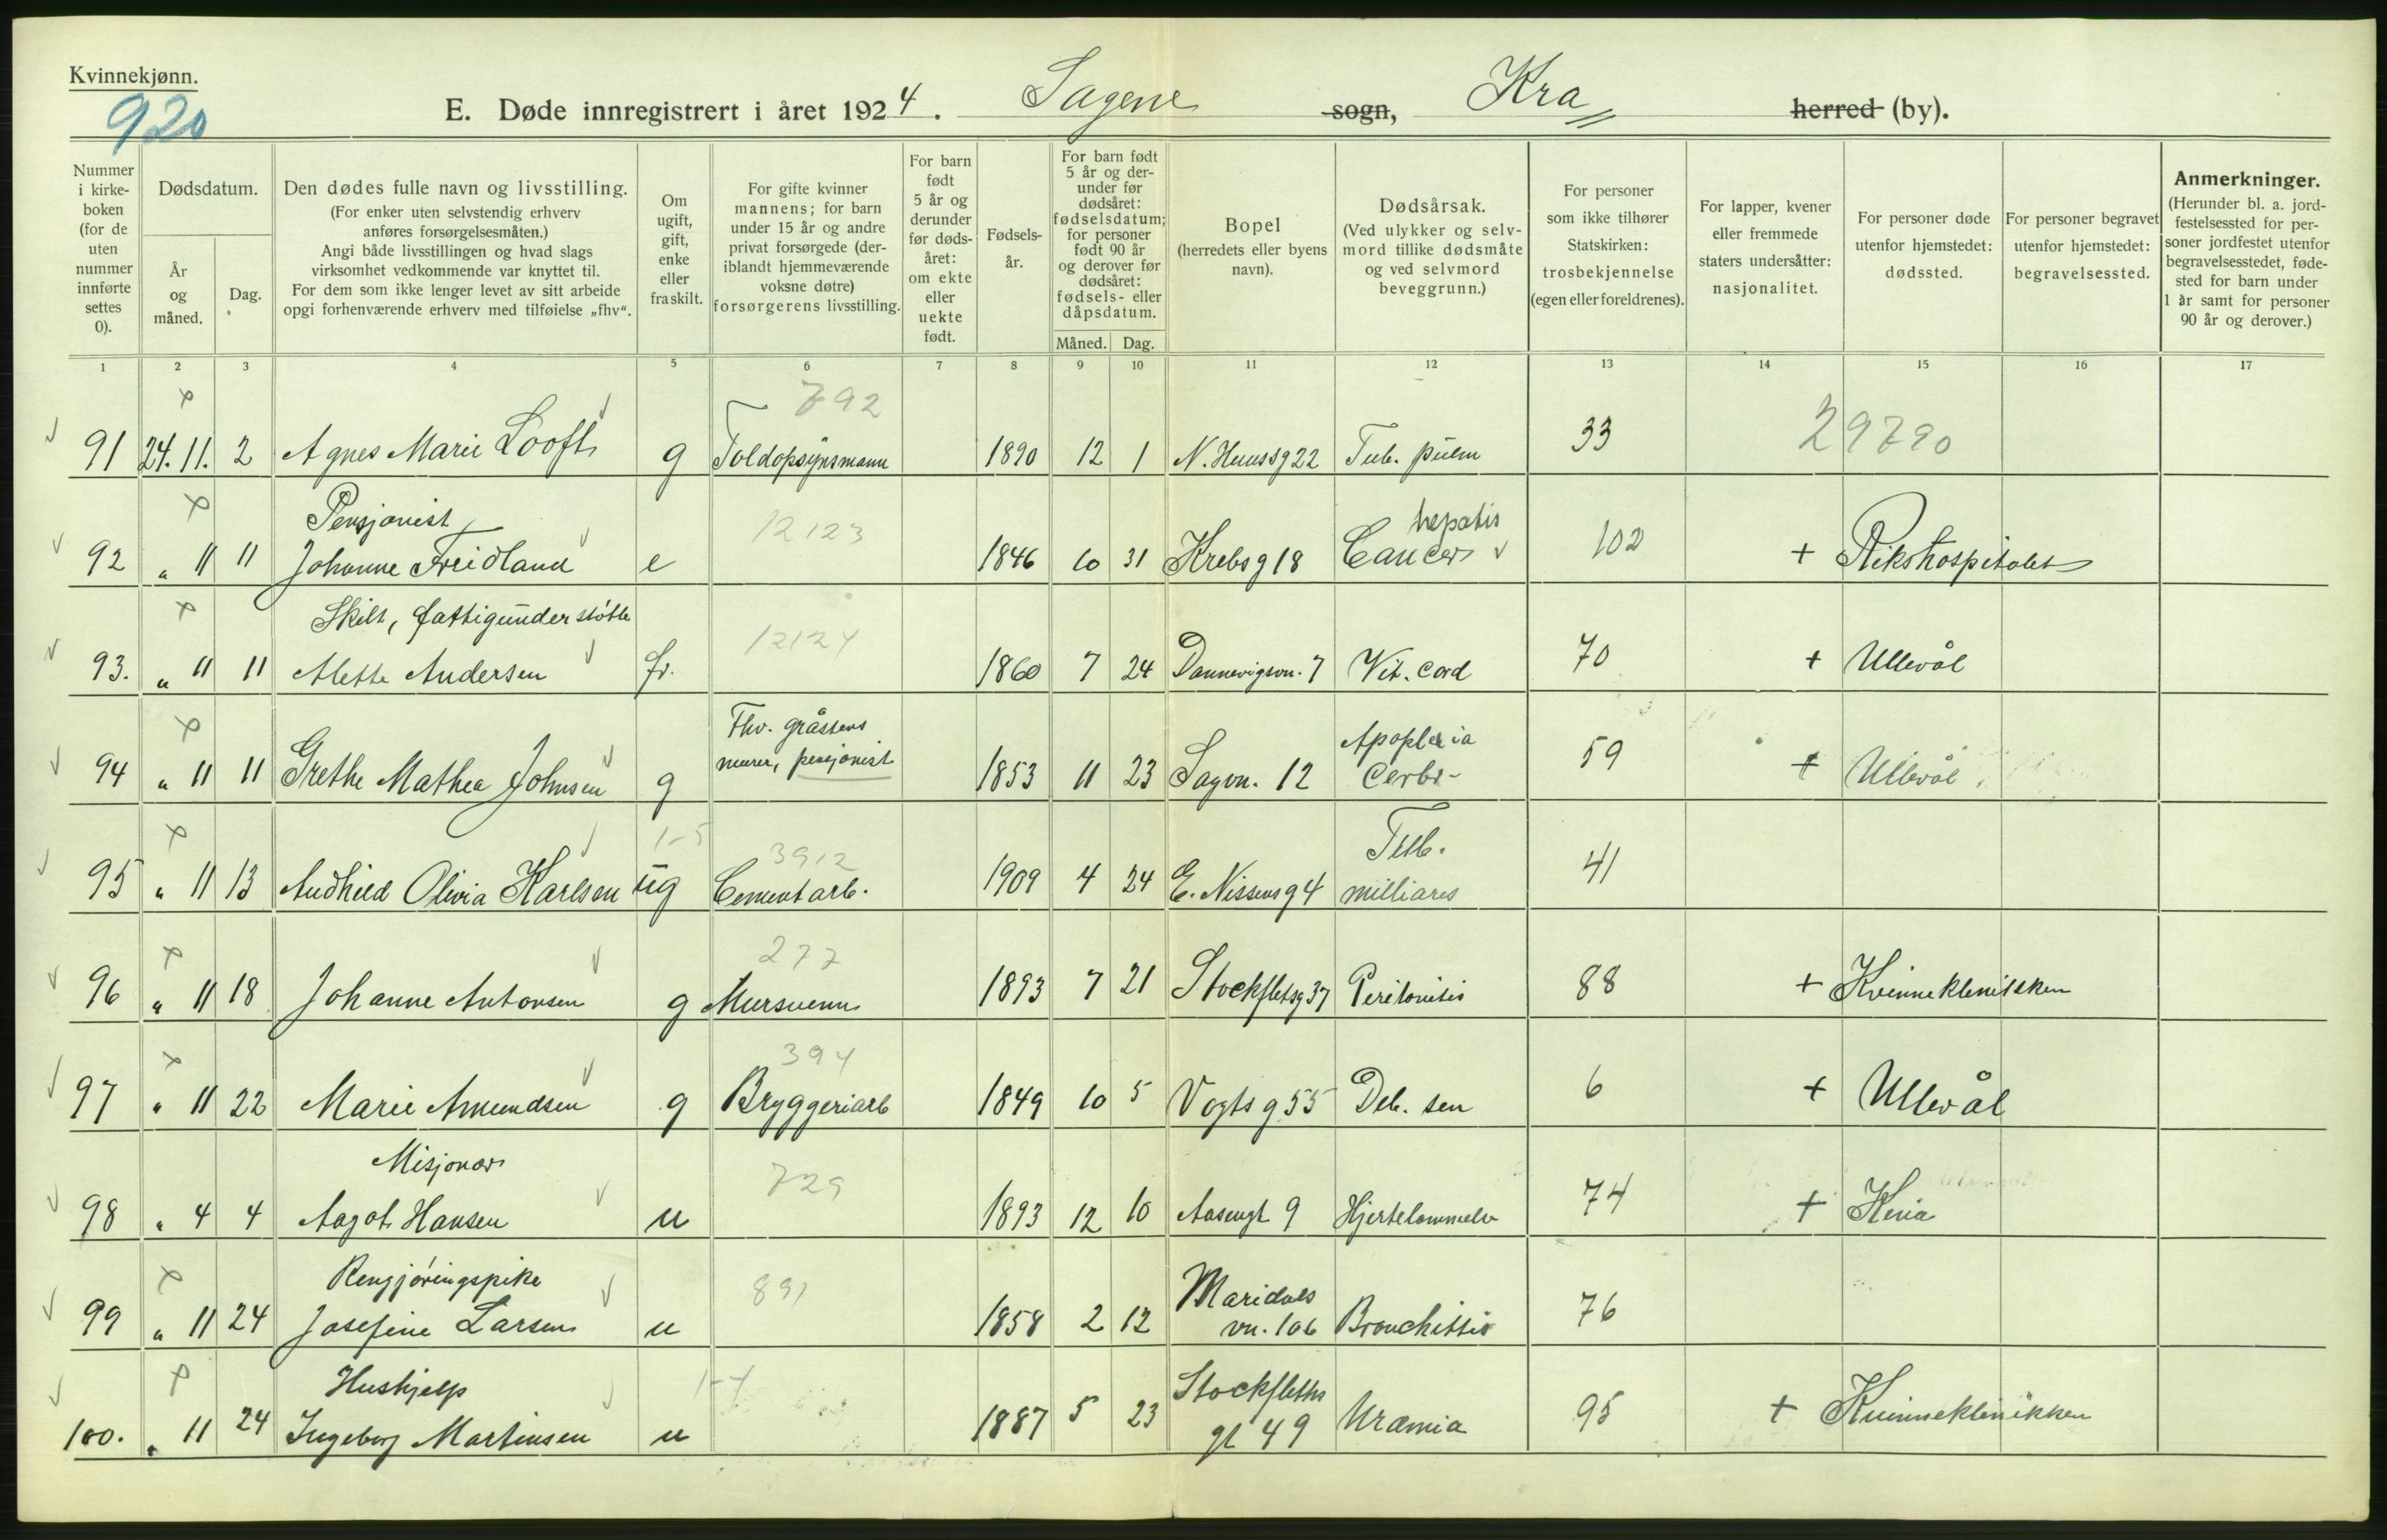 Kvinnekjønn.
920
E. Døde innregistrert i året 1924. Sagene sogn, Kra herred (by).
Nummer i kirkeboken (for de uten nummer innførte settes 0).
Dødsdatum.
År og måned.
Dag.
Den dødes fulle navn og livsstilling.
(For enker uten selvstendig erhverv anføres forsørgelsesmåten.)
Angi både livsstillingen og hvad slags virksomhet vedkommende var knyttet til.
For dem som ikke lenger levet av sitt arbeide opgi forhenværende erhverv med tilføielse „fhv“.
Om ugift, gift, enke eller fraskilt.
For gifte kvinner mannens; for barn under 15 år og andre privat forsørgede (deriblandt hjemmeværende voksne døtre) forsørgerens livsstilling.
For barn født 5 år og derunder før dødsåret: om ekte eller uekte født.
Fødselsår.
For barn født 5 år og derunder før dødsåret: fødselsdatum; for personer født 90 år og derover før dødsåret: fødsels- eller dåpsdatum.
Måned. Dag.
Bopel (herredets eller byens navn).
Dødsårsak.
(Ved ulykker og selvmord tillike dødsmåte og ved selvmord beveggrunn.)
For personer som ikke tilhører Statskirken: trosbekjennelse (egen eller foreldrenes).
For lapper, kvener eller fremmede staters undersåtter: nasjonalitet.
For personer døde utenfor hjemstedet: dødssted.
For personer begravet utenfor hjemstedet: begravelsessted.
Anmerkninger.
(Herunder bl. a. jordfestelsessted for personer jordfestet utenfor begravelsesstedet, fødested for barn under 1 år samt for personer 90 år og derover.)
1 2 3 4 5 6 7 8 9 10 11 12 13 14 15 16 17
792
91 24. 11. 2 Agnes Marie Looft g Toldopsynsmann 1890 12 1 N. Huussg 22 Tub. pulm 33 29790
Pensjonist 12123 hepatis
92 „ 11 11 Johanne Freidland e 1846 10 31 Krebsg 18 Cancer 102 + Rikshospitalet
Skilt, fattigunderstøtte 12124
93. „ 11 11 Alette Andersen fr. 1860 7 24 Dannevigsvn. 7 Vit. cord 70 + Ullevål
Fhv. gråstens Apoplexia
murer, pensjonist
94 „ 11 11 Grethe Mathea Johnsen g 1853 11 23 Sagvn. 12 Cerbr- 59 + Ullevål
1-5 3912 Tub.
95 „ 11 13 Audhild Olivia Karlsen ug Cementarb. 1909 4 24 E. Nissensg 4 milliares 41
277
96 „ 11 18 Johanne Antonsen g Mursvenn 1893 7 21 Stockfletsg 37 Peritonitis 88 + Kvinneklenikken
394
97 „ 11 22 Marie Amundsen g Bryggeriarb 1849 10 5 Vogts g 55 Deb. sen 6 + Ullevål
Misjonær 729
98 „ 4 4 Aagot Hansen u 1893 12 10 Aasengt 9 Hjertelammelse 74 + Kina
Rengjøringspike 891 Maridals
99 „ 11 24 Josefine Larsen u 1858 2 12 vn. 106 Bronchittis 76
Hushjelp 1-7 Stockfleths
100. „ 11 24 Ingeborg Martinsen u 1887 5 23 gt 49 Uræmia 95 + Kvinneklinikken